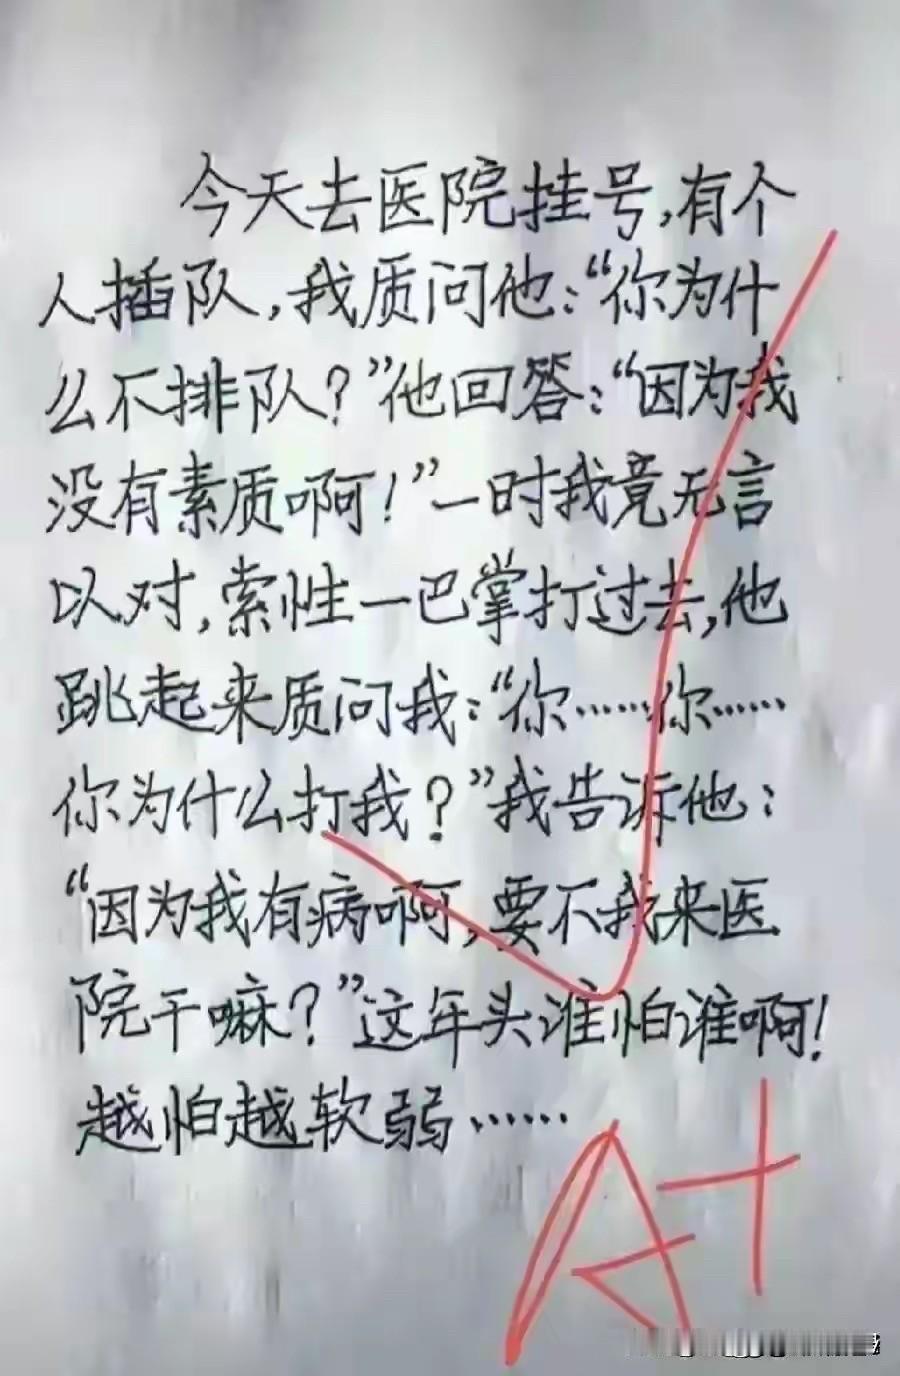 今天去医院挂号,有个
人插队,我质问他:“你为什
么不排队?”他回答:“因为我
没有素质啊!”一时我竟无言
以对,索性一巴掌打过去,他
跳起来质问我:“你……你……
你为什么打我?”我告诉他:
“因为我有病啊,要不我来医
院干嘛?”这年头谁怕谁啊!
越怕越软弱……
A+